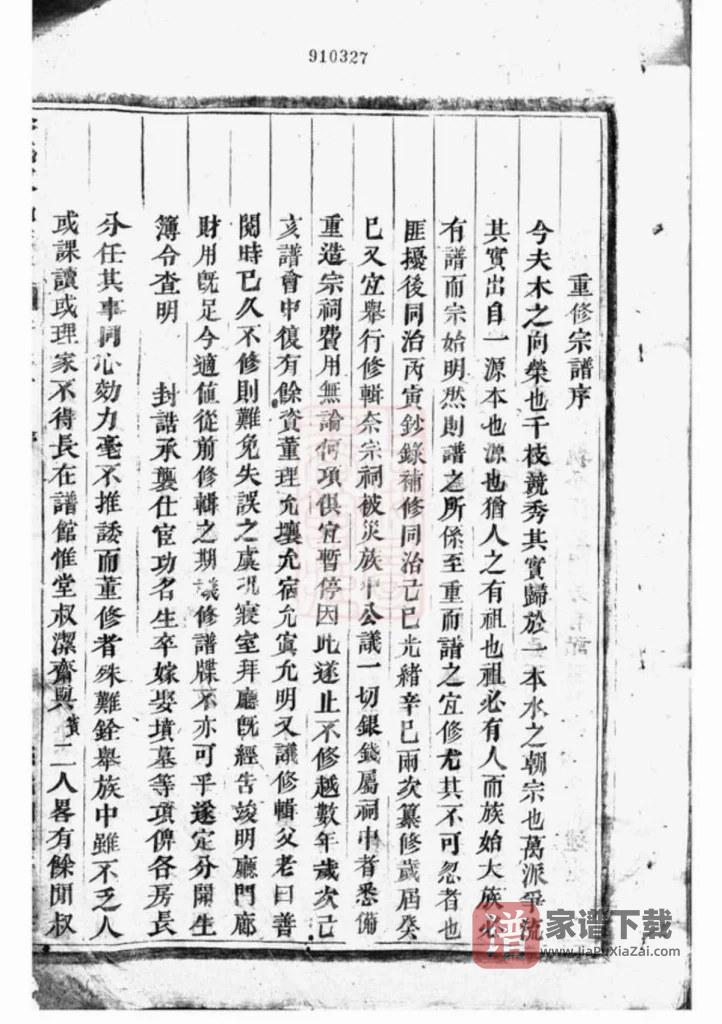 910327
重修宗譜序
今夫木之向榮也千枝競秀其實歸於一本水之朝宗也萬派爭流
其實出自一源本也源也猶人之有祖也祖必有人而族始大族必
有譜而宗始明然則譜之所係至重而譜之宜修尤其不可忽者也
匪擾後同治丙寅鈔錄補修同治己巳光緒辛巳兩次纂修歲屆癸
巳又宜舉行修輯奈宗祠被災族中公議一切銀錢屬祠中者悉備
重造宗祠費用無論何項俱宜暫停因此遂止不修越數年歲次己
亥譜會中復有餘資董理允壤允宿允寅允明又議修輯父老曰善
閱時已久不修則難免失誤之虞況寢室拜廳既經告竣明廳門廊
財用既足今適值從前修輯之期議修譜牒不亦可乎遂定分開生
簿令查明 封誥承襲仕宦功名生卒嫁娶墳墓等項俾各房長
分任其事同心効力毫不推諉而董修者殊難銓舉族中雖不乏人
或課讀或理家不得長在譜館惟堂叔潔齋與 二人畧有餘閒叔
譜
家谱下载
www.JiaPuXiaZai.com